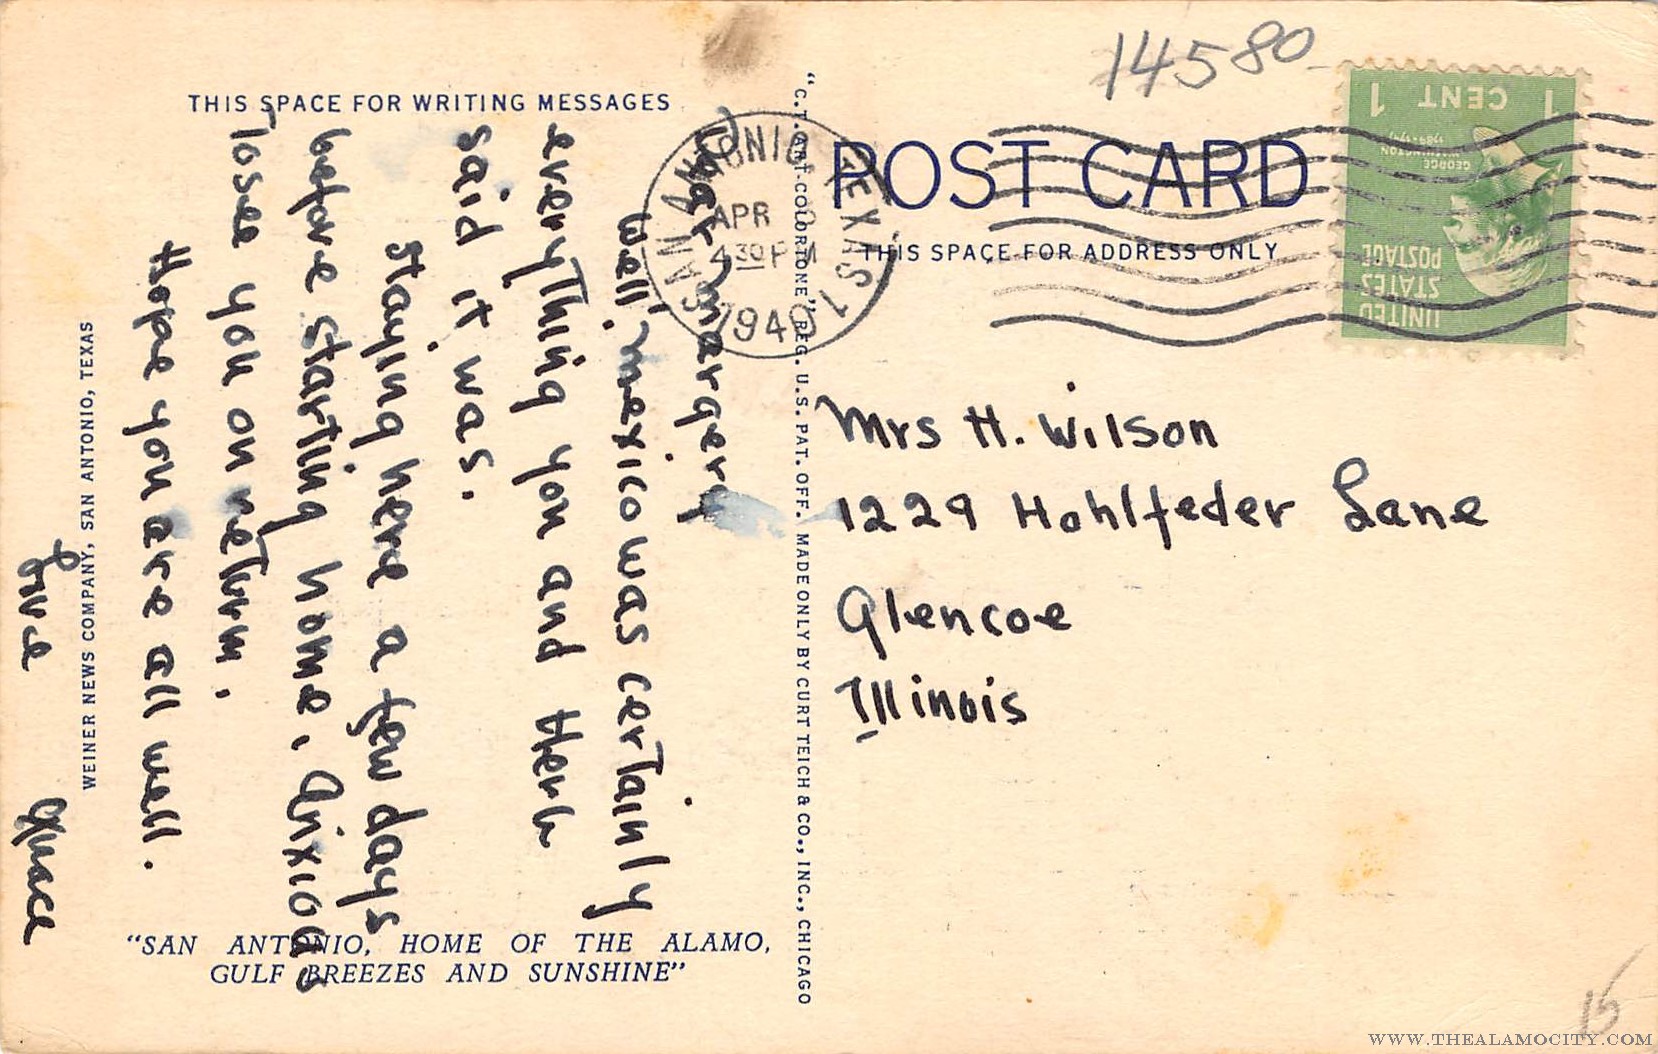 14580
THIS SPACE FOR WRITING MESSAGES
POST CARD
THIS SPACE FOR ADDRESS ONLY
SAN ANTONIO, TEXAS 1
APR
4 30 PM
1940
1 CENT 1
GEORGE
WASHINGTON
1789-1797
UNITED
STATES
POSTAGE
Dear Margery
Well, Mexico was certainly
everything you and Herb
said it was.
Staying here a few days
before starting home. Anxious
to see you on return.
Hope you are all well.
Love Grace
Mrs H. Wilson
1229 Hohlfeder Lane
Glencoe
Illinois
WEINER NEWS COMPANY, SAN ANTONIO, TEXAS
"C.T. ART-COLORTONE" REG. U.S. PAT. OFF. MADE ONLY BY CURT TEICH & CO., INC., CHICAGO
"SAN ANTONIO, HOME OF THE ALAMO,
GULF BREEZES AND SUNSHINE"
15
WWW.THEALAMOCITY.COM